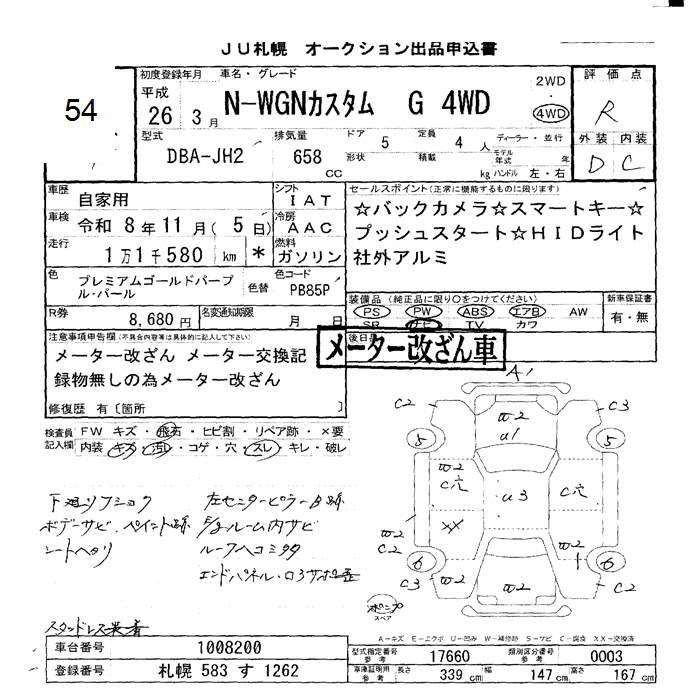 JU札幌 オークション出品申込書
54
初度登録年月 車名・グレード 2WD 評価点
平成 26 3月 N-WGNカスタム G 4WD 4WD R
型式 排気量 ドア 5 定員 4人 ディーラー・並行 外装 内装
DBA-JH2 658 CC 形状 積載 kg モデル年式 年 ハンドル 左・右 D C
車歴 自家用 シフト IAT セールスポイント(正常に機能するものに限ります)
車検 令和 8年 11月 (5日) 冷房 AAC ☆バックカメラ☆スマートキー☆
走行 1万1千580 km * 燃料 ガソリン プッシュスタート☆HIDライト
社外アルミ
色 プレミアムゴールドパープル・パール 色替 色コード PB85P
装備品(純正品に限り○をつけてください) 新車保証書
R券 8,680円 名変通知期限 月 日 PS PW ABS エアB AW 有・無
SR ナビ TV カワ
注意事項申告欄(不具合内容等は具体的に記入して下さい) 後日品
メーター改ざん車
メーター改ざん メーター交換記
録物無しの為メーター改ざん
修復歴 有〔箇所 〕
検査員記入欄 FW キズ・飛石・ヒビ割・リペア跡・×要
内装 キズ・汚れ・コゲ・穴・スレ・キレ・破レ
A1
C2 C3
W2
U1
5 5
W2 C穴 U3 C穴
XX
W2
C2 W2
6 6
C3 W2 W2 C2
スペア
下廻リフショク 左センターピラーB跡
ボデーサビ、ペイント跡 E/gルーム内サビ
シートヘタリ ルーフヘコミタタ
A-キズ E-エクボ U-凹み W-補修跡 S-サビ C-腐食 XX-交換済
車台番号 1008200 型式指定番号 参考 17660 類別区分番号 参考 0003
登録番号 札幌 583 す 1262 車庫証明用 参考 長さ 339 cm 幅 147 cm 高さ 167 cm